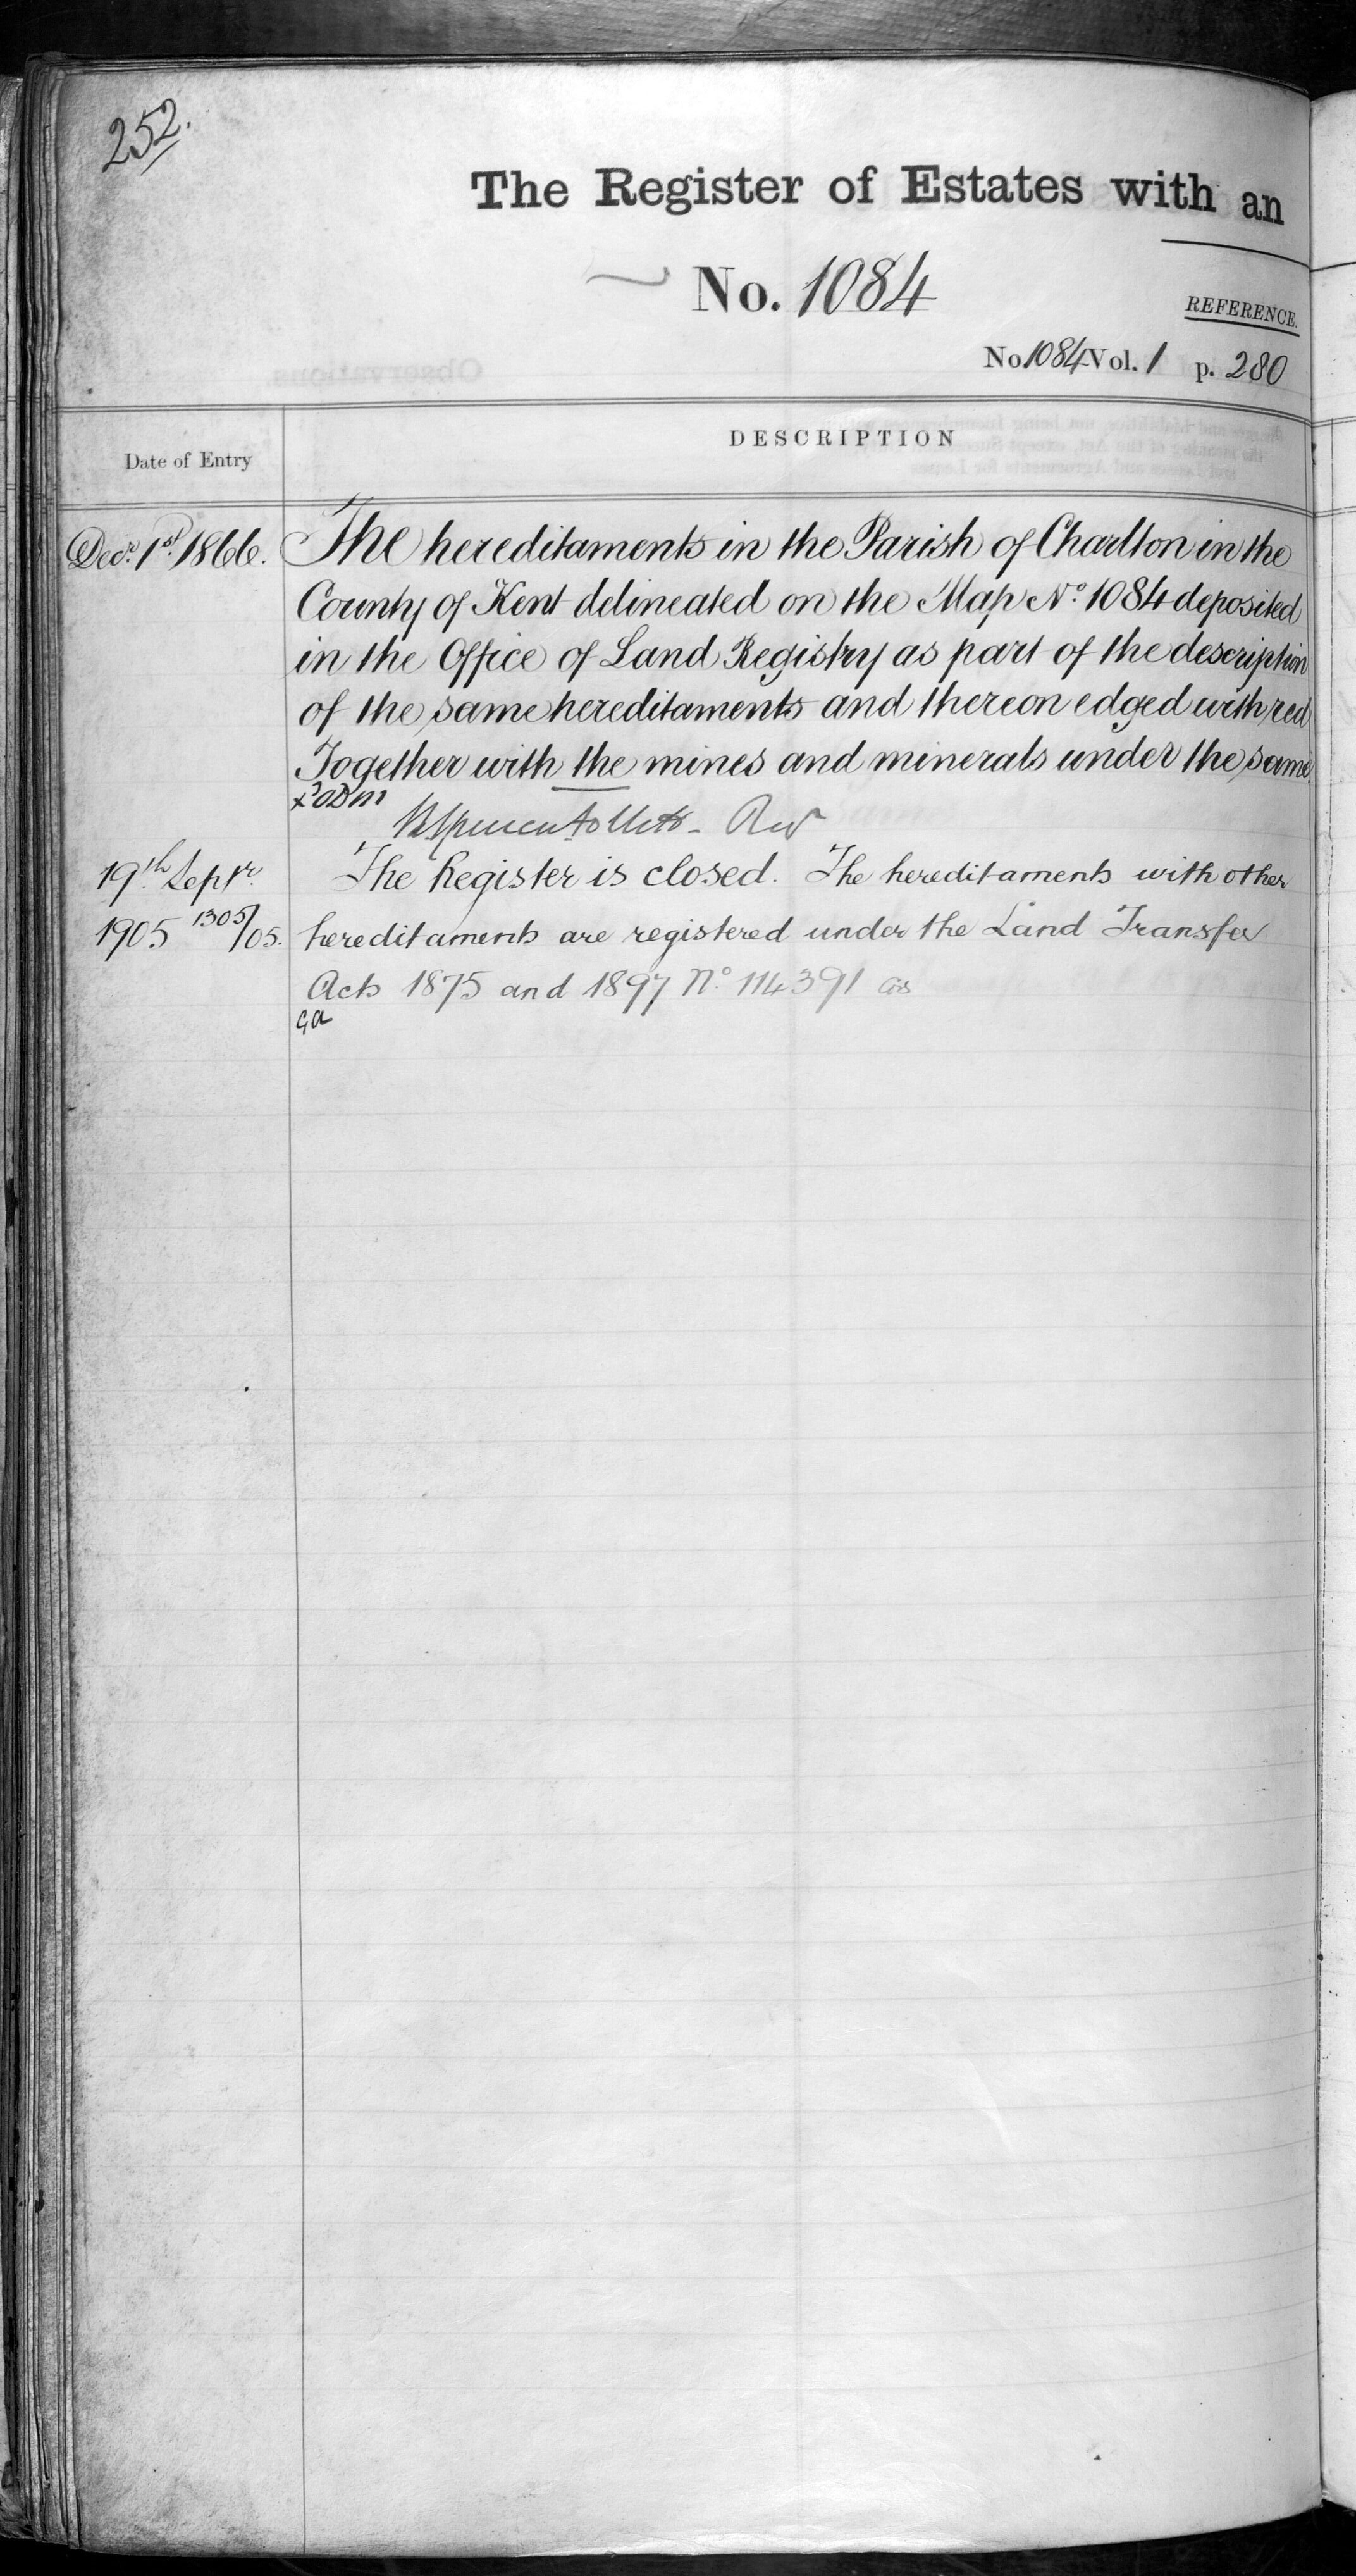 252.
The Register of Estates with an
No. 1084
REFERENCE.
No 1084 Vol. 1 p. 280
Date of Entry
DESCRIPTION
Decr. 1st. 1866. The hereditaments in the Parish of Charlton in the
County of Kent delineated on the Map No. 1084 deposited
in the Office of Land Registry as part of the description
of the same hereditaments and thereon edged with red
Together with the mines and minerals under the same.
19th. Septr. The Register is closed. The hereditaments with other
1905 1305/05. hereditaments are registered under the Land Transfer
Acts 1875 and 1897 No. 114391